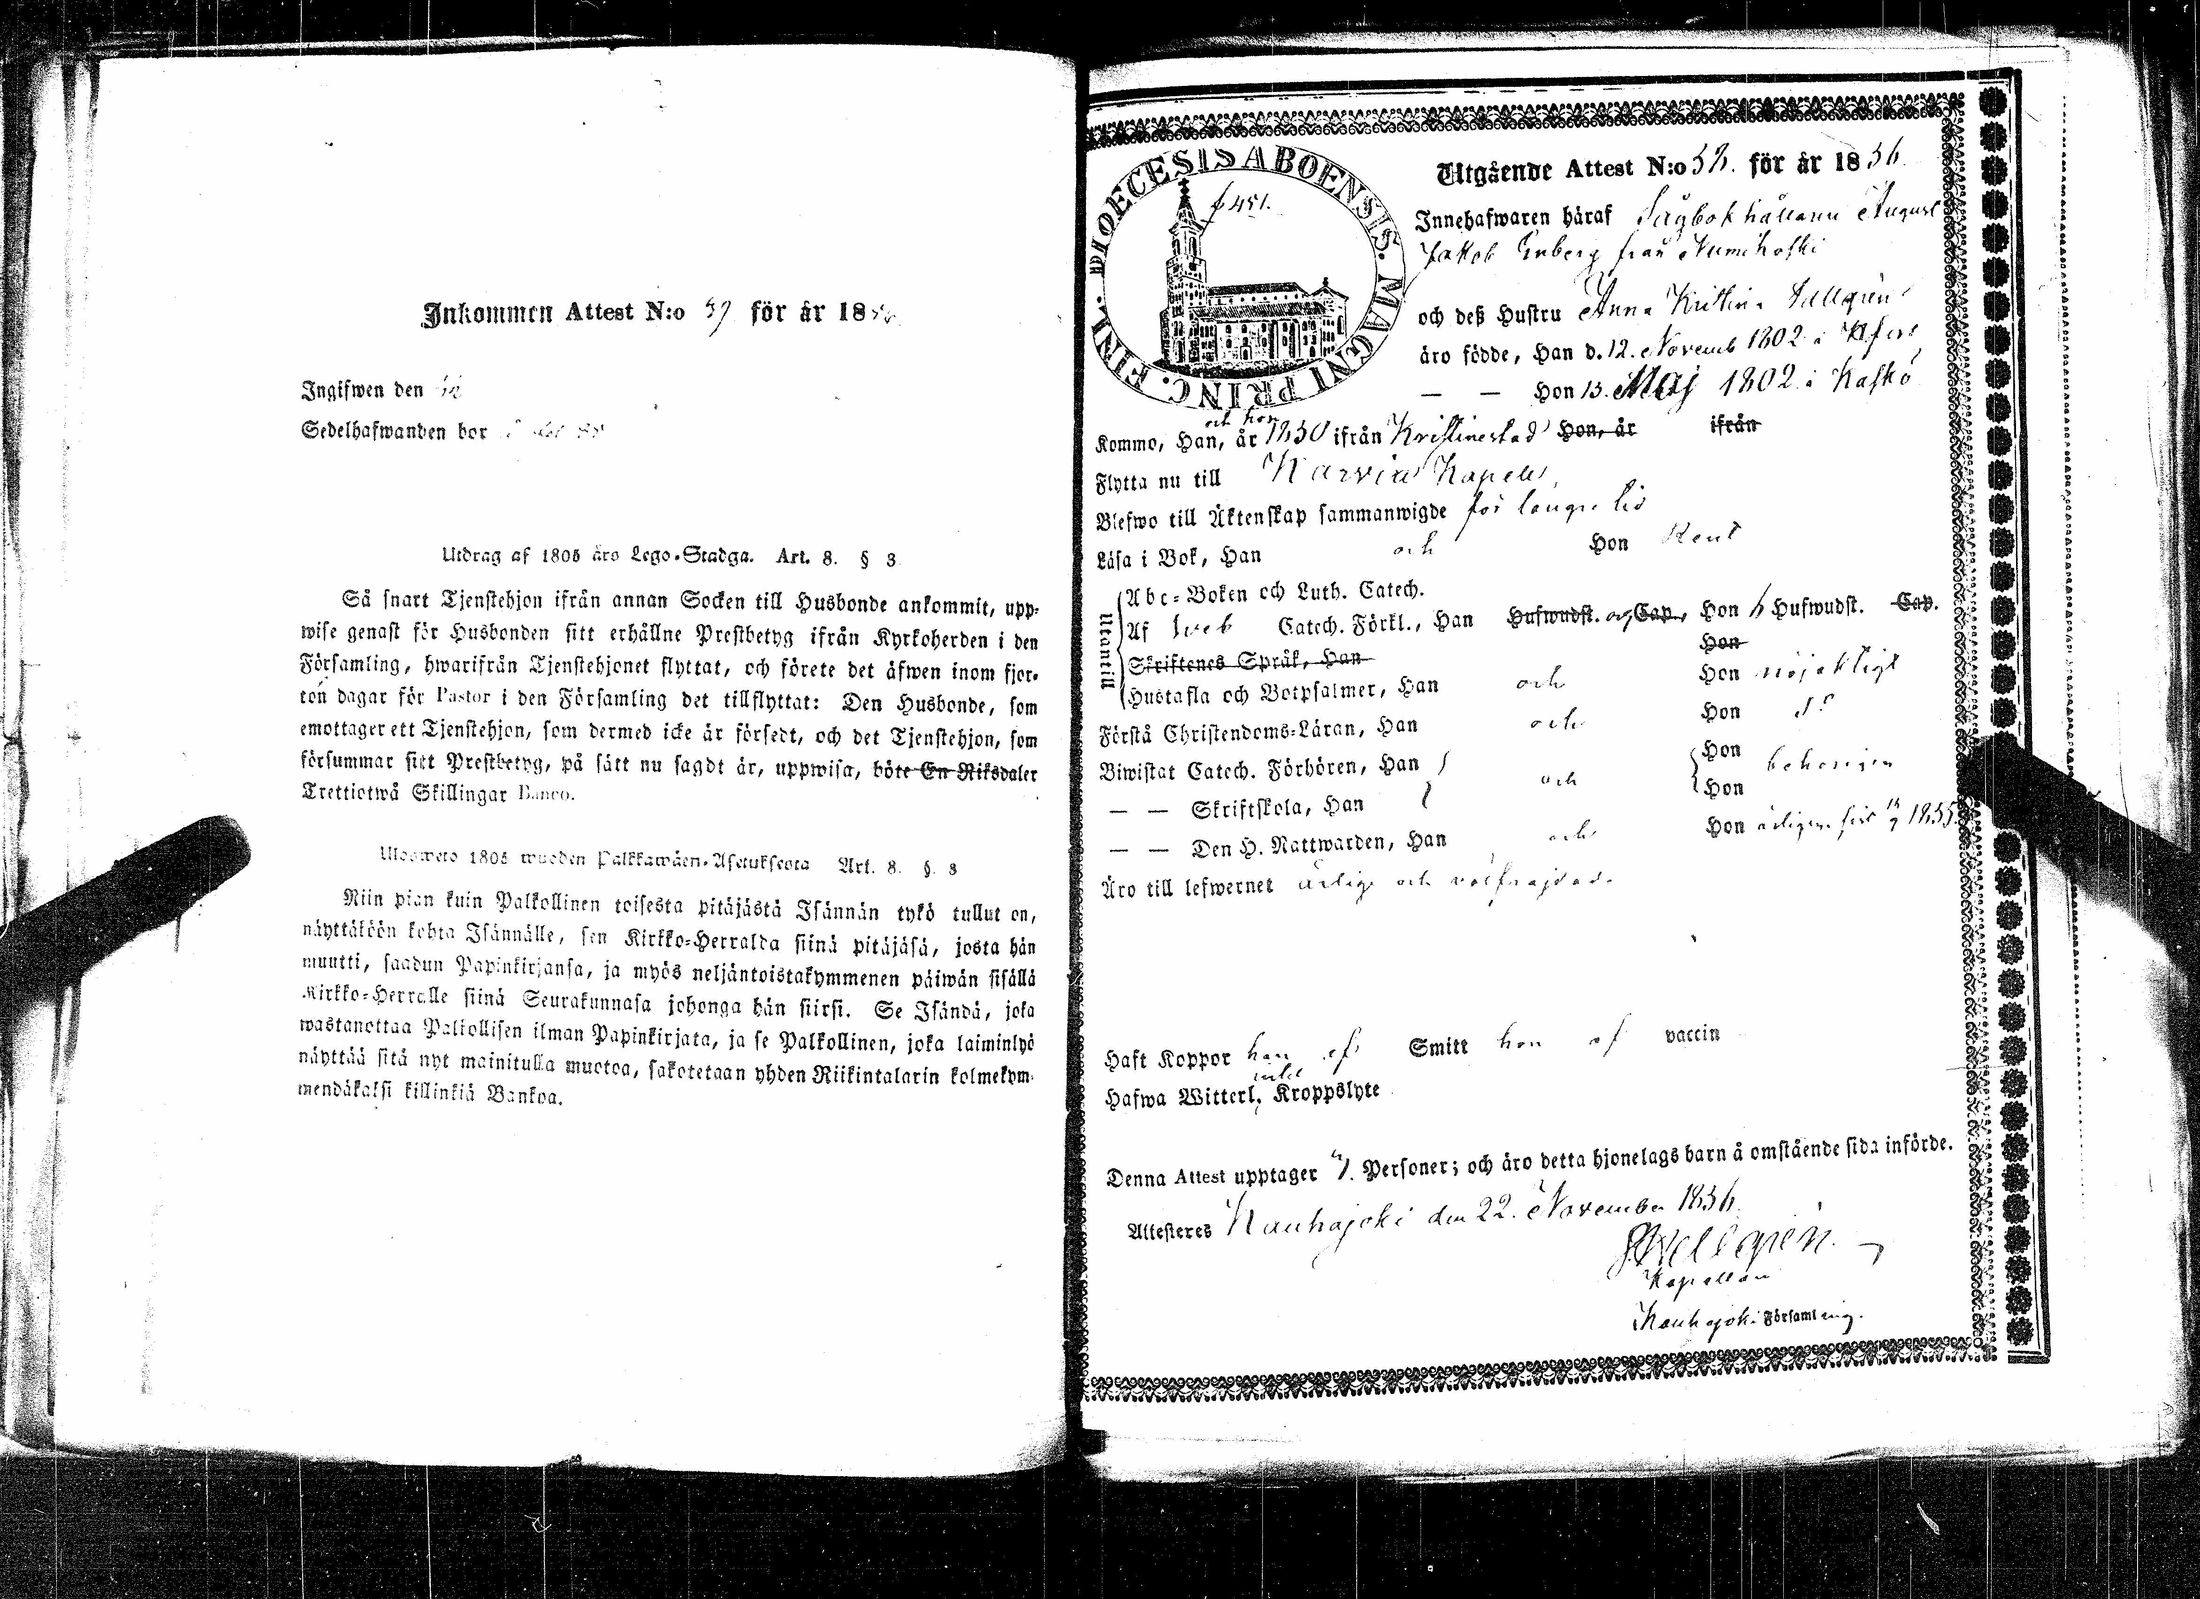 Inkommen Attest N:o 59 för år 18
Ingifwen den
Sedelhafwanden bor
Utdrag af 1805 års Lego-Stadga. Art. 8. § 3
Så snart Tjenstehjon ifrån annan Socken till Husbonde ankommit, upp-
wise genast för Husbonden sitt erhållne Prestbetyg ifrån Kyrkoherden i den
Församling, hwarifrån Tjenstehjonet flyttat, och förete det äfwen inom fjor-
ton dagar för Pastor i den Församling det tillflyttat: Den Husbonde, som
emottager ett Tjenstehjon, som dermed icke är försedt, och det Tjenstehjon, som
försummar sitt Prestbetyg, på sätt nu sagdt är, uppwisa, böte En Riksdaler
Trettiotwå Skillingar Banco.
Ulosweto 1805 wuoden Palkkawäen-Asetuksesta Art. 8. § 3
Niin pian kuin Palkollinen toisesta pitäjästä Isännän tykö tullut on,
näyttäköön kohta Isännälle, sen Kirkko-Herralda siinä pitäjäsä, josta hän
muutti, saadun Papinkirjansa, ja myös neljäntoistakymmenen päiwän sisällä
Kirkko-Herralle siinä Seurakunnasa johonga hän siirsi. Se Isändä, joka
wastanottaa Palkollisen ilman Papinkirjata, ja se Palkollinen, joka laiminlyö
näyttää sitä nyt mainitulla muotoa, sakotetaan yhden Riikintalarin kolmekym-
mendäkaksi killinkiä Bankoa.
DIOECESIS ABOENSIS. MAGNI PRINC. FINL.
f 451.
Utgående Attest N:o 52. för år 1836.
Innehafwaren häraf Sågbokhållaren August
Jakob Enberg från
och deß Hustru Anna Kristina Sallgrén
äro födde, Han d. 12. Novemb 1802 i
— — Hon 13. Maj 1802 i Kaskö
och hon
Kommo, Han, år 1830 ifrån Kristinestad Hon, år ifrån
Flytta nu till Karvia Kapell
Blefwo till Äktenskap sammanwigde för längre tid
Läsa i Bok, Han och Hon Rent
Utantill
Abc-Boken och Luth. Catech.
Af Sveb Catech. Förkl., Han Hufwudst. och Cap., Hon 6 Hufwudst. Cap.
Skriftenes Språk, Han Hon
Hustafla och Botpsalmer, Han och Hon nöjaktigt
Förstå Christendoms-Läran, Han och Hon d:o
Biwistat Catech. Förhören, Han och Hon behörigen
— — Skriftskola, Han Hon
— — Den H. Nattwarden, Han och Hon årligen
Äro till lefwernet ärliga och välfrejdade
Haft Koppor han af Smitt hon af vaccin
Hafwa Witterl. Kroppslyte
Denna Attest upptager 4. Personer; och äro detta hjonelags barn å omstående sida införde.
Attesteres Kauhajoki den 22. November 1836.
Kapellan
Kauhajoki Församling.